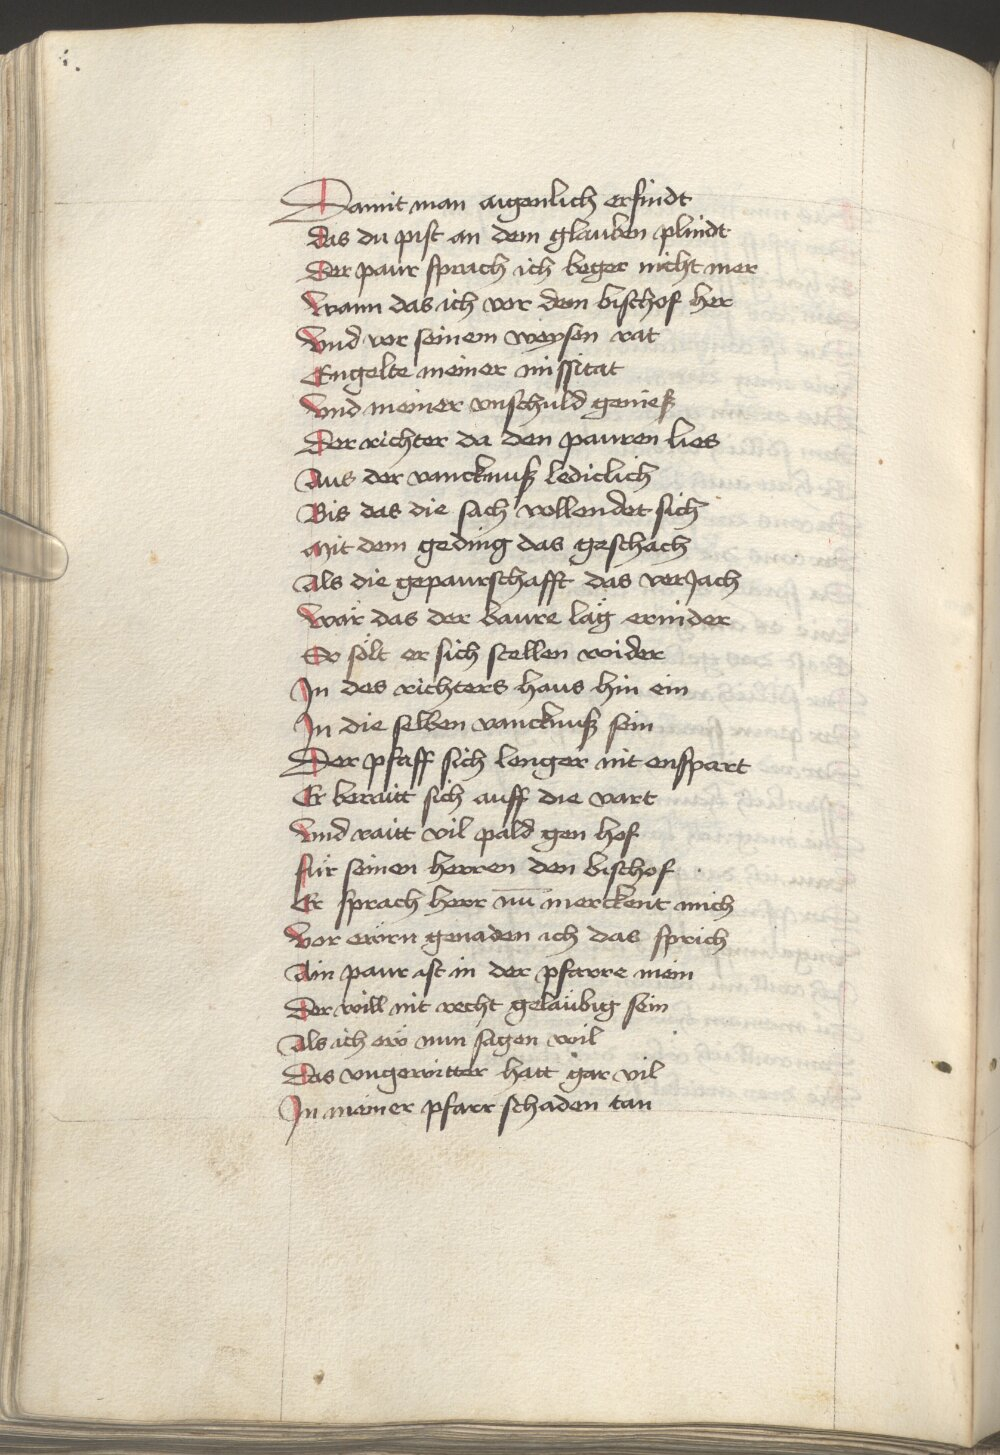 Damit man aigenlich erfindt
Das du pist an dem glauben plindt
Der paur sprach ich beger nicht mer
Wann das ich vor dem bischof her
Vnd vor seinem weysen rat
Engelte meiner missitat
Vnd meiner vnschuld genieß
Der richter da den pauren lies
Aus der vancknuß lediclich
Bis das die sach vollendet sich
Mit dem geding das geschach
Als die gepaurschafft das verJach
Wär das der baure läg ernider
So sölt er sich stellen wider
In des richters haus hin ein
In die selben vancknuß sein
Der pfaff sich lenger nit enspart
Er beraitt sich auff die vart
Vnd raitt vil pald gen hof
für seinen herren den bischof
Er sprach herr nu merckent mich
Vor ewrn genaden ich das sprich
Ain paur ist in der pfarre mein
Der will nit recht geläubig sein
Als ich ew nun sagen wil
Das vngewitter hatt gar vil
In meiner pfarr schaden tan